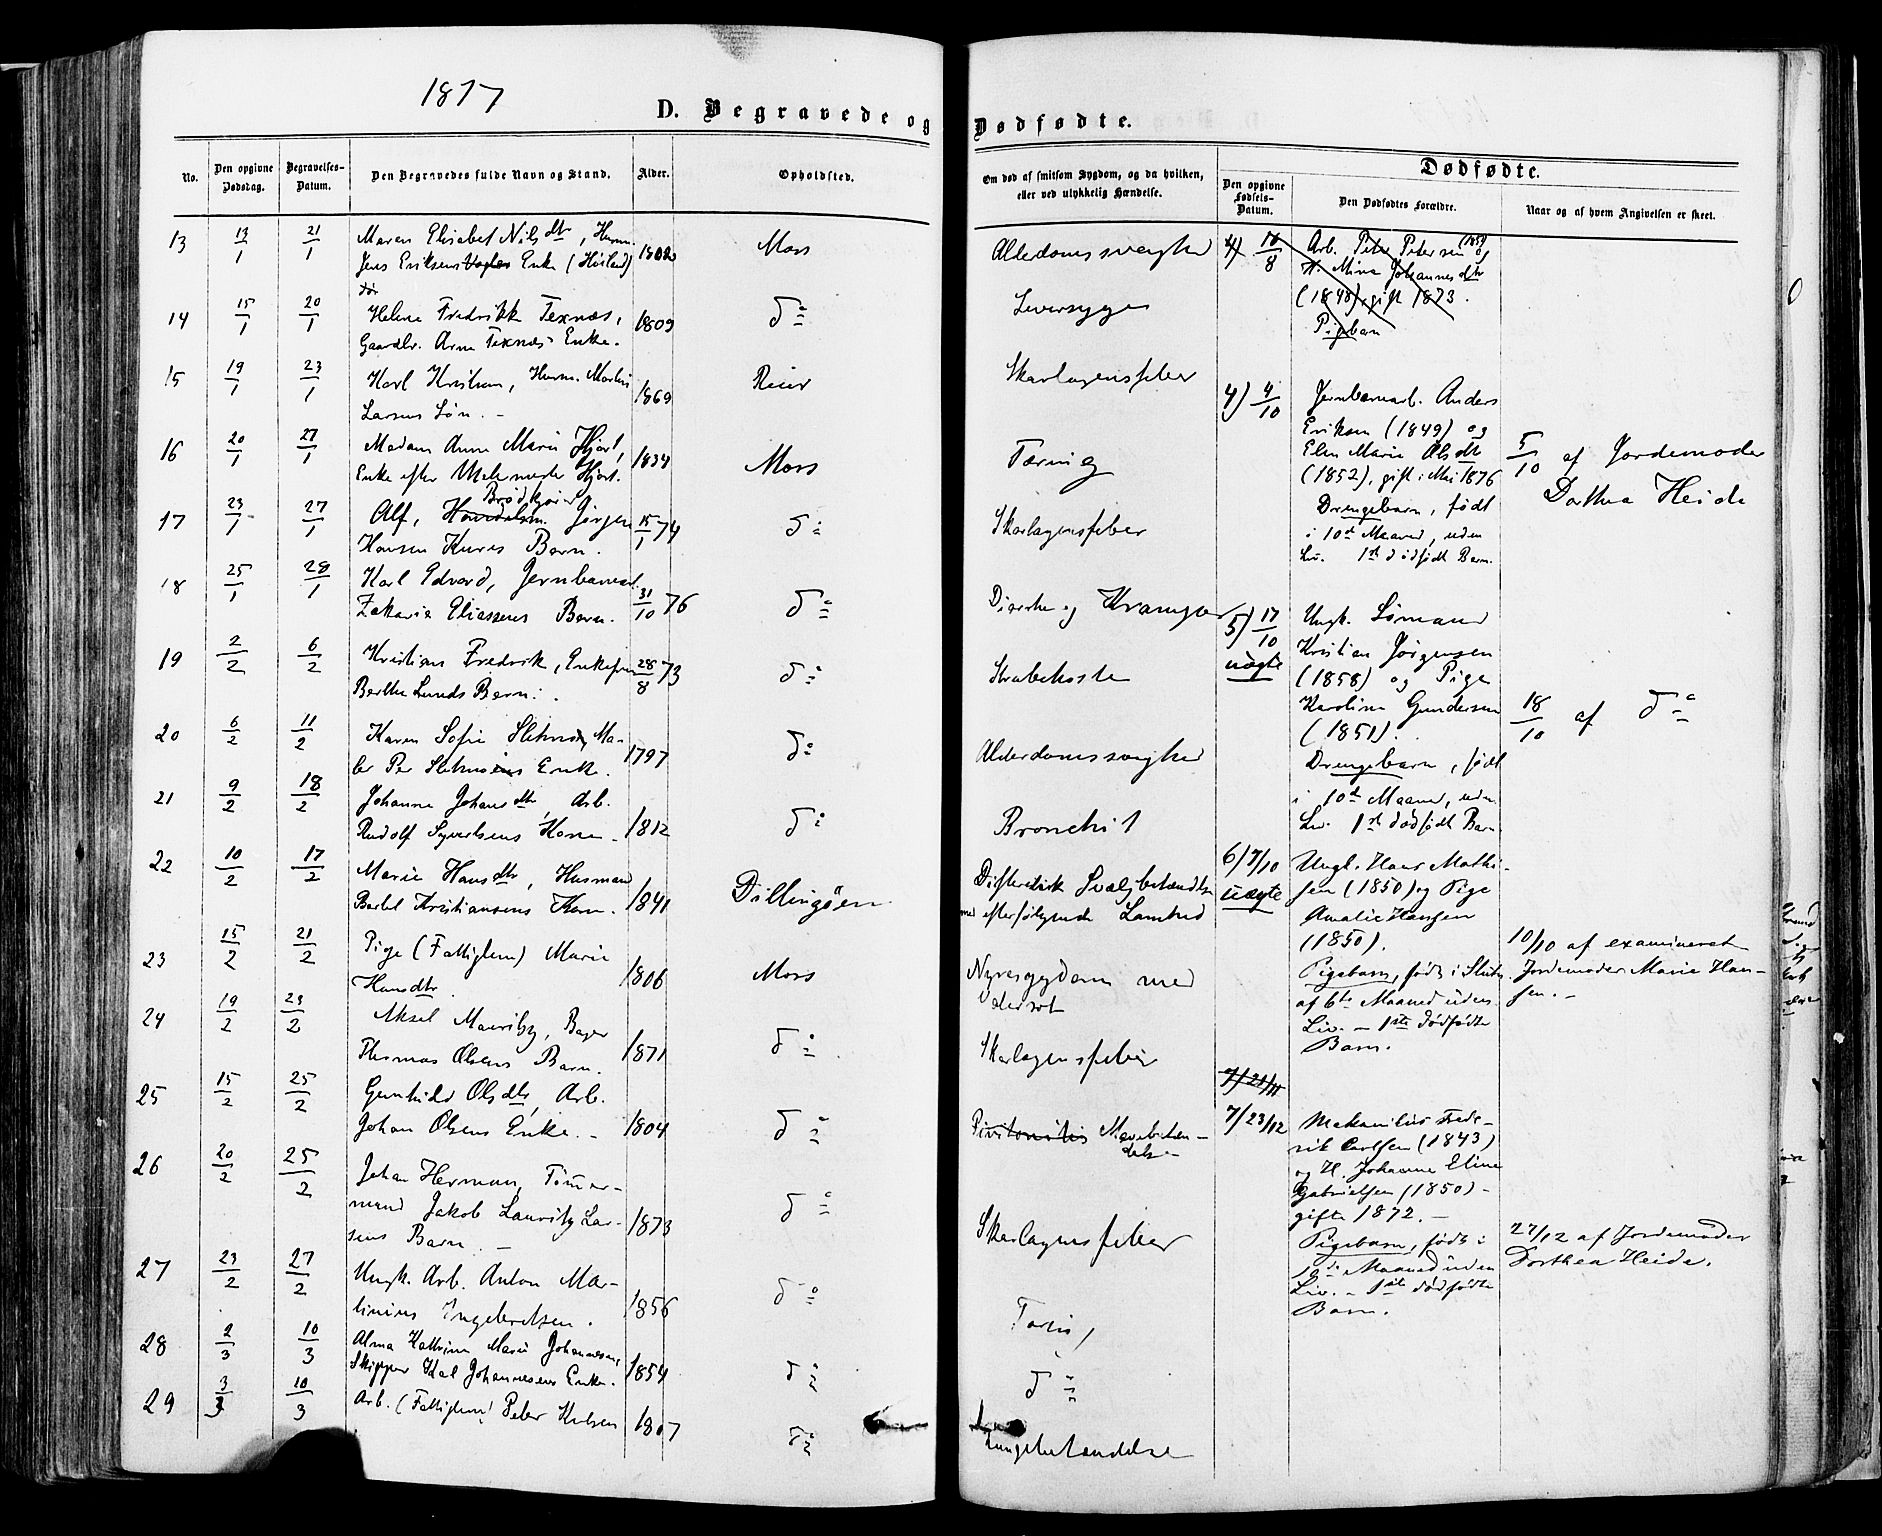 1877
D. Begravede og
Dødfødte.
No.
Den opgivne Dødsdag.
Begravelses-Datum.
Den Begravedes fulde Navn og Stand.
Alder.
Opholdsted.
Om død af smitsom Sygdom, og da hvilken, eller ved ulykkelig Hændelse.
Dødfødte.
Den opgivne Fødsels-Datum.
Den Dødfødtes Forældre.
Naar og af hvem Angivelsen er skeet.
13 13/1 21/1 Maren Elisabet Nilsdtr, Husm.
Jens Eriksens Enke 1802 Moss Alderdomssvaghed
14 15/1 20/1 Helene Fredrikke Texnæs,
Gaardbr. Arne Texnæs Enke. 1809 do Leversyge
15 19/1 23/1 Karl Kristian, Husm. Martin
Larsens Søn. - 1869 Reier Skarlagensfeber
16 20/1 27/1 Madam Anne Marie Hjort,
Enke efter Hjort. 1834 Moss Tæring
17 23/1 27/1 Alf, Brødkjører Jørgen
Hansen Kures Barn. 15/1 74 do Skarlagensfeber
18 25/1 28/1 Karl Edvard, Jernbanearb.
Zakarias Eliassens Barn. 31/10 76 do Diarrhe og Kramper
19 2/2 6/2 Kristian Fredrik, Enkefru
Berthe Lunds Barn. 28/8 73 do Strubehoste
20 6/2 11/2 Karen Sofie Ma-
ler Per Enke. 1797 do Alderdomssvaghed
21 9/2 18/2 Johanne Johansdtr, Arb.
Rudolf Syvertsens Kone - 1812 do Bronchit
22 10/2 17/2 Marie Hansdtr, Husmand
Bertel Kristiansens Kone. 1841 Dillingøen Difteritisk Svælgbetændelse
med efterfølgende Lamhed
23 15/2 21/2 Pige (Fattiglem) Marie
Hansdtr. 1806 Moss Nyresygdom med
Vatersot
24 19/2 23/2 Aksel Mauritz, Bager
Thomas Olsens Barn. 1871 do Skarlagensfeber
25 15/2 25/2 Gunhild Olsdtr, Arb.
Johan Olsens Enke. - 1804 do Mavebetæn-
delse
26 20/2 25/2 Johan Herman, Tømmer-
mand Jakob Lauritz Lar-
sens Barn. - 1873 do Skarlagensfeber
27 23/2 27/2 Ungk. Arb. Anton Mar-
tinius Ingebretsen. 1856 do Tæring
28 2/3 10/3 Alma Kathrine Marie Johannesen,
Skipper Karl Johannesens Enke. 1854 do do
29 3/3 10/3 Arb. (Fattiglem) Peter 1807 do Lungebetændelse
4) 18/8 Arb. Peter Petersen og
H. Mina Johannesdtr
(1848), gift 1873.
Pigebarn
4) 4/10 Jernbanearb. Anders
Eriksen (1849) og
Elen Marie Olsdtr
(1852), gift i Mai 1876
Drengebarn, født
i 10de Maaned, uden
Liv. 1ste dødfødt Barn.
5/10 af Jordemoder
Dorthea Heide
5) 17/10 uægte Ungk. Sømand
Kristian Jørgensen
(1858) og Pige
Karoline Gundersen
(1851).
Drengebarn, født
i 10de Maaned, uden
Liv. 1ste dødfødt Barn
18/10 af do
6/ 7/10 uægte Ungk. Hans Mathi-
sen (1850) og Pige
Amalie Hansen
(1850).
Pigebarn, født i Slutn.
af 6te Maaned uden
Liv. - 1ste dødfødte
Barn.
10/10 af examineret
Jordemoder Marie Han-
sen. -
7/21/11
7/23/12 Mekanikus Frede-
rik Carlsen (1843)
og H. Johanne Eline
Gabrielsen (1850) -
gifte 1872. -
Pigebarn, født i
10de Maaned uden
Liv. - 1ste dødfødte
Barn.
27/12 af Jordemoder
Dorthea Heide.